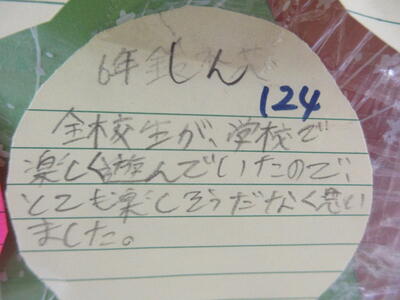 6年 しん
124
全校生が、学校で
楽しく遊んでいたので、
とても楽しそうだなく思い
ました。